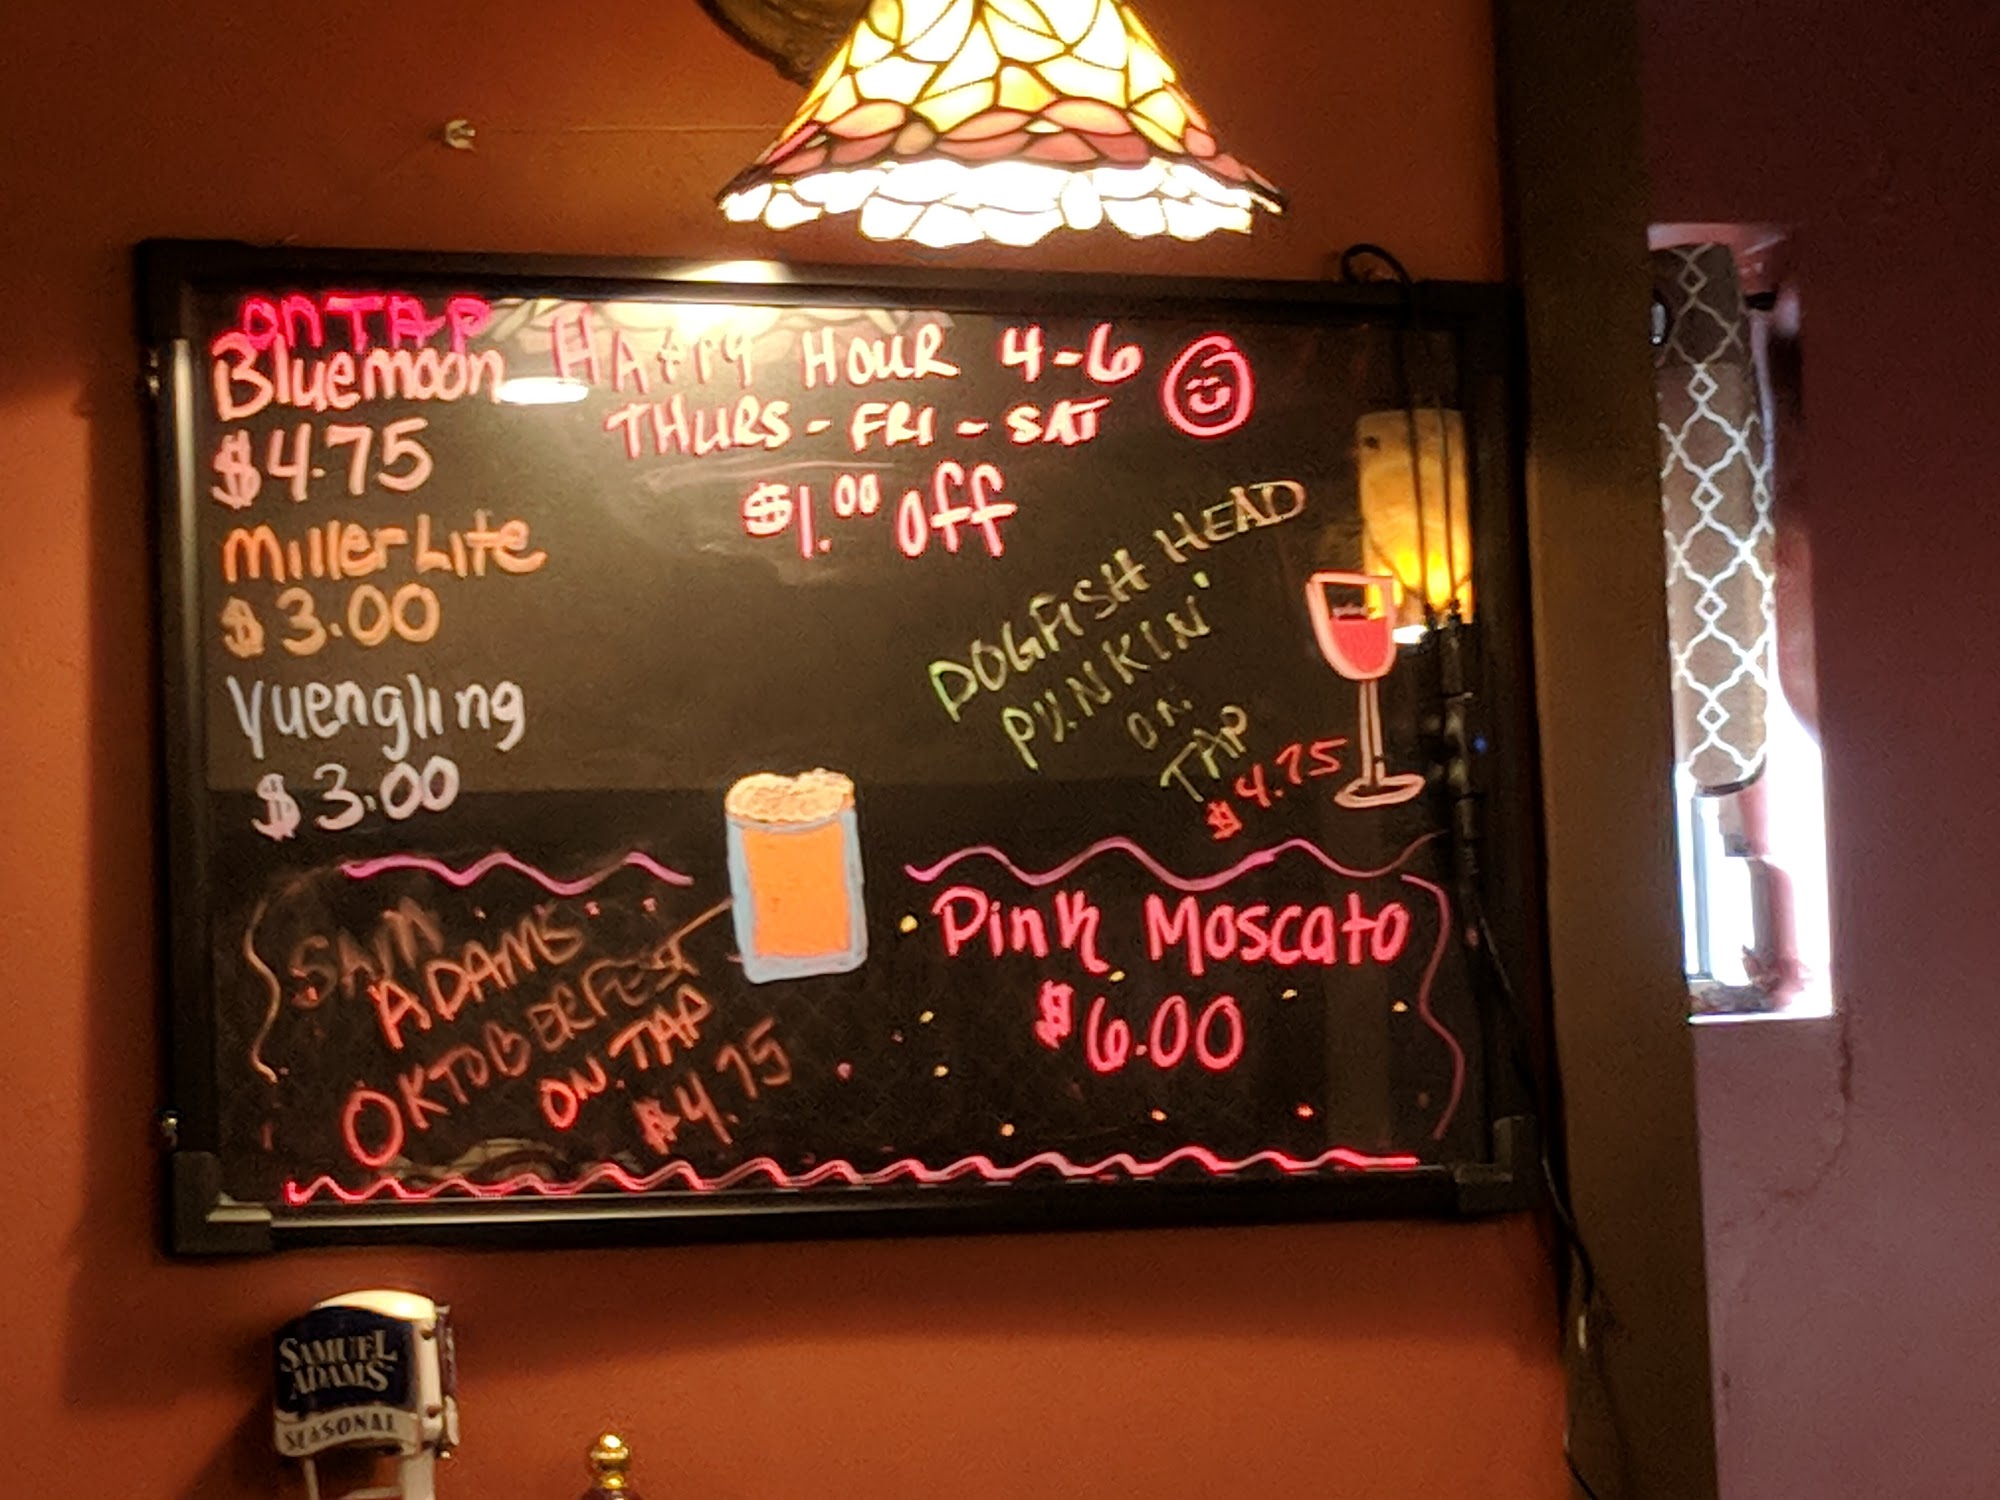 ON TAP
Bluemoon
$4.75
Miller Lite
$3.00
Yuengling
$3.00
HAPPY HOUR 4-6
THURS - FRI - SAT
$1.00 off
DOGFISH HEAD
PUNKIN'
ON
TAP
$4.75
SAM
ADAMS
OKTOBERFEST
ON TAP
$4.75
Pink Moscato
$6.00
SAMUEL
ADAMS
SEASONAL